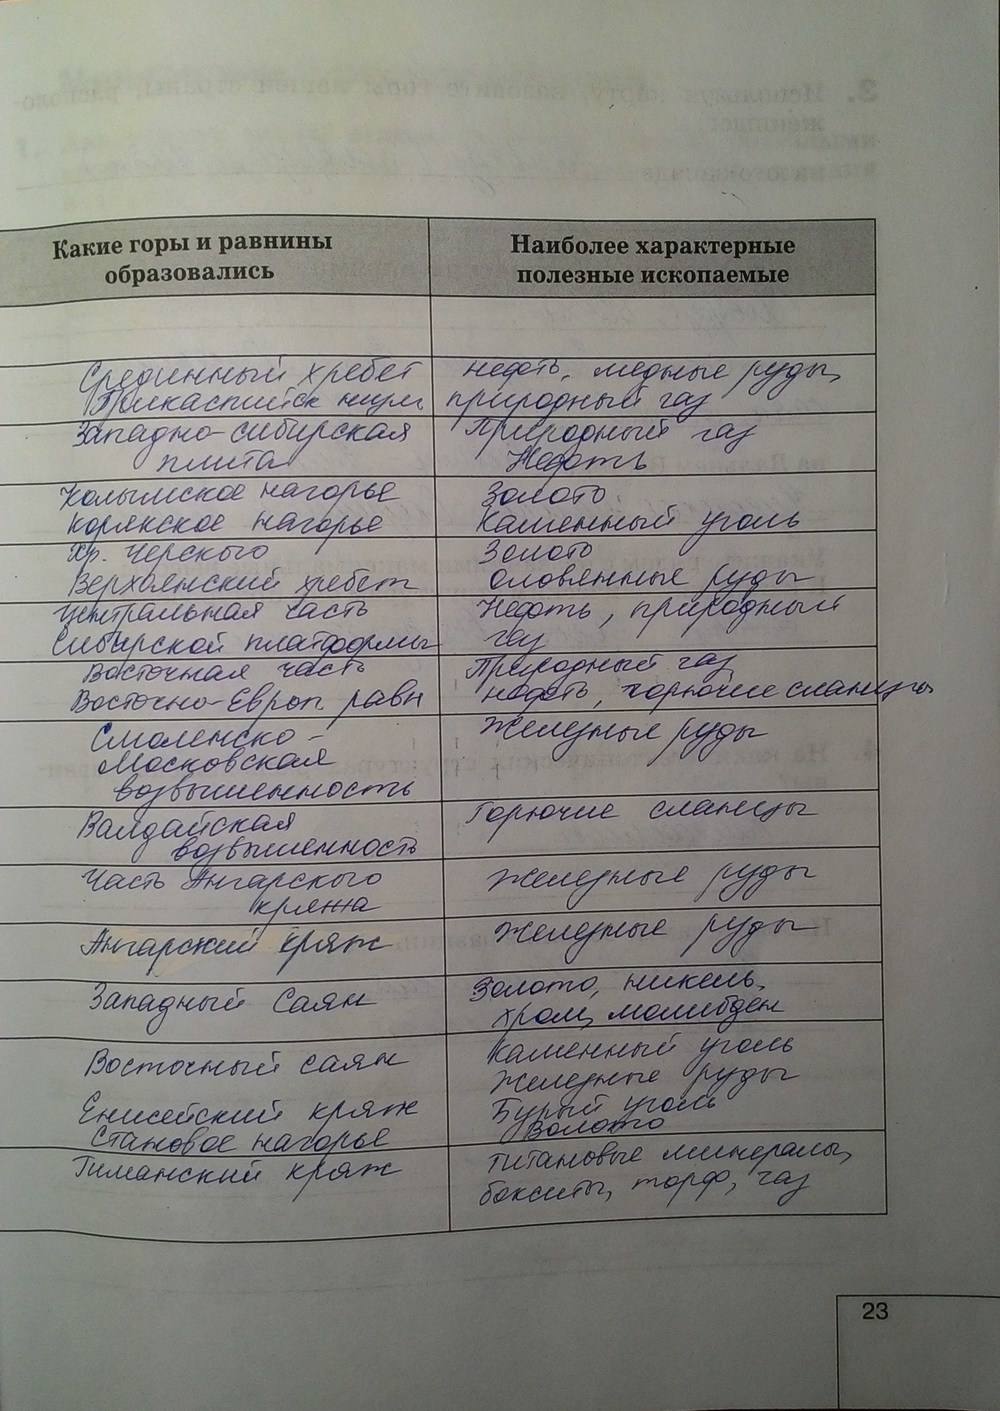 Какие горы и равнины
образовались
Наиболее характерные
полезные ископаемые
Срединный хребет
Прикаспийск низм
нефть, медные руды,
природный газ
Западно-сибирская
плита
Природный газ
Нефть
Колымское нагорье
Корякское нагорье
Золото
Каменный уголь
Хр. Черского
Верхоянский хребет
Золото
Оловянные руды
Центральная часть
Сибирской платформы
Нефть, природный
газ
Восточная часть
Восточно-Европ. равн
Природный газ,
нефть, горючие сланцы
Смоленско-
Московская
возвышенность
Железные руды
Валдайская
возвышенность
Горючие сланцы
Часть Ангарского
кряжа
Железные руды
Ангарский кряж
Железные руды
Западный Саян
Золото, никель,
хром, молибден
Восточный саян
Каменный уголь
Железные руды
Енисейский кряж
Становое нагорье
Бурый уголь
Золото
Тиманский кряж
титановые минералы,
бокситы, торф, газ
23